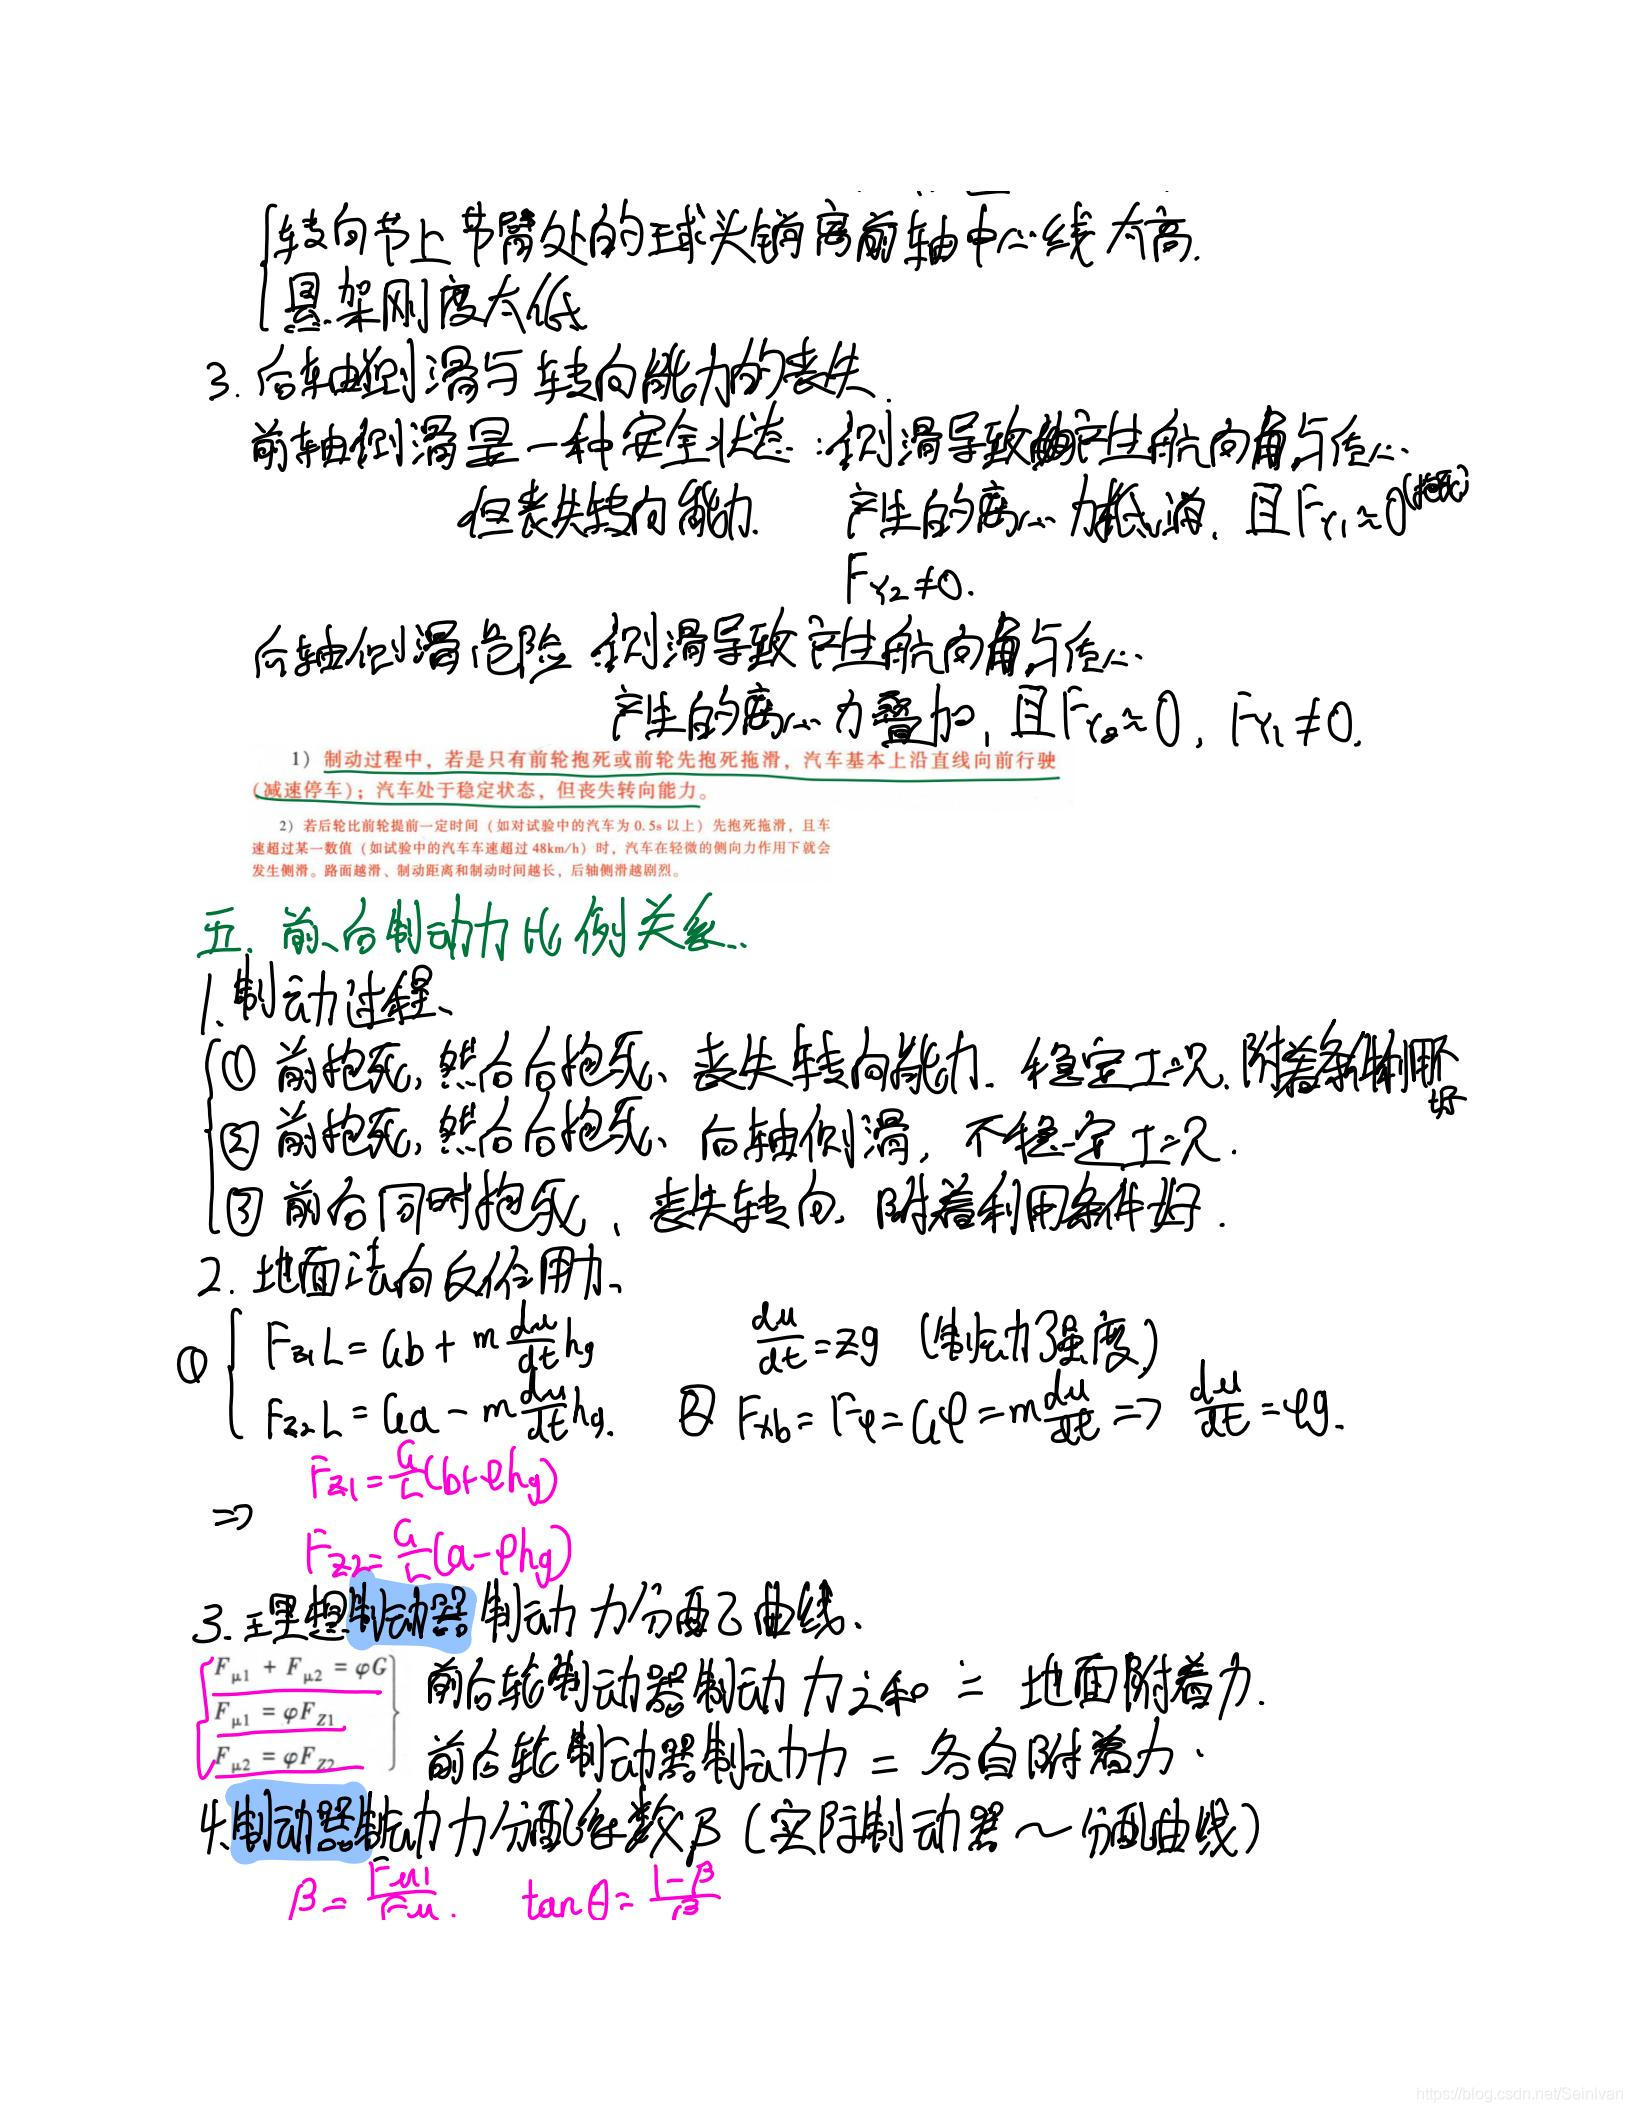 转向节上节臂处的球头销离前轴中心线太高.
悬架刚度太低
3. 后轴侧滑与转向能力的丧失.
前轴侧滑是一种安全状态: 侧滑导致产生航向角,与质心
但丧失转向能力. 产生的离心力抵消, 且F_Y1≈0(抱死)
F_Y2≠0.
后轴侧滑危险 侧滑导致产生航向角,与质心
产生的离心力叠加, 且F_Y2≈0, F_Y1≠0.
1) 制动过程中，若是只有前轮抱死或前轮先抱死拖滑，汽车基本上沿直线向前行驶
(减速停车)；汽车处于稳定状态，但丧失转向能力。
2) 若后轮比前轮提前一定时间（如对试验中的汽车为 0.5s 以上）先抱死拖滑，且车
速超过某一数值（如试验中的汽车车速超过 48km/h）时，汽车在轻微的侧向力作用下就会
发生侧滑。路面越滑、制动距离和制动时间越长，后轴侧滑越剧烈。
五. 前、后制动力比例关系.
1. 制动过程、
① 前抱死, 然后后抱死、丧失转向能力. 稳定工况. 附着条件利用不好
② 前抱死, 然后后抱死、后轴侧滑, 不稳定工况.
③ 前后同时抱死, 丧失转向, 附着利用条件好.
2. 地面法向反作用力、
① F_Z1 L = Gb + m du/dt hg du/dt = zg (制动强度)
F_Z2 L = Ga - m du/dt hg. ② F_Xb = F_φ = Gφ = m du/dt => du/dt = φg.
=> F_Z1 = G/L (b+φhg)
F_Z2 = G/L (a-φhg)
3. 理想制动器制动力分配曲线.
F_μ1 + F_μ2 = φG 前后轮制动器制动力之和 = 地面附着力.
F_μ1 = φF_Z1
F_μ2 = φF_Z2 前后轮制动器制动力 = 各自附着力.
4. 制动器制动力分配系数β (实际制动器～分配曲线)
β = F_μ1/F_μ. tanθ = (1-β)/β
https://blog.csdn.net/SeinIvan